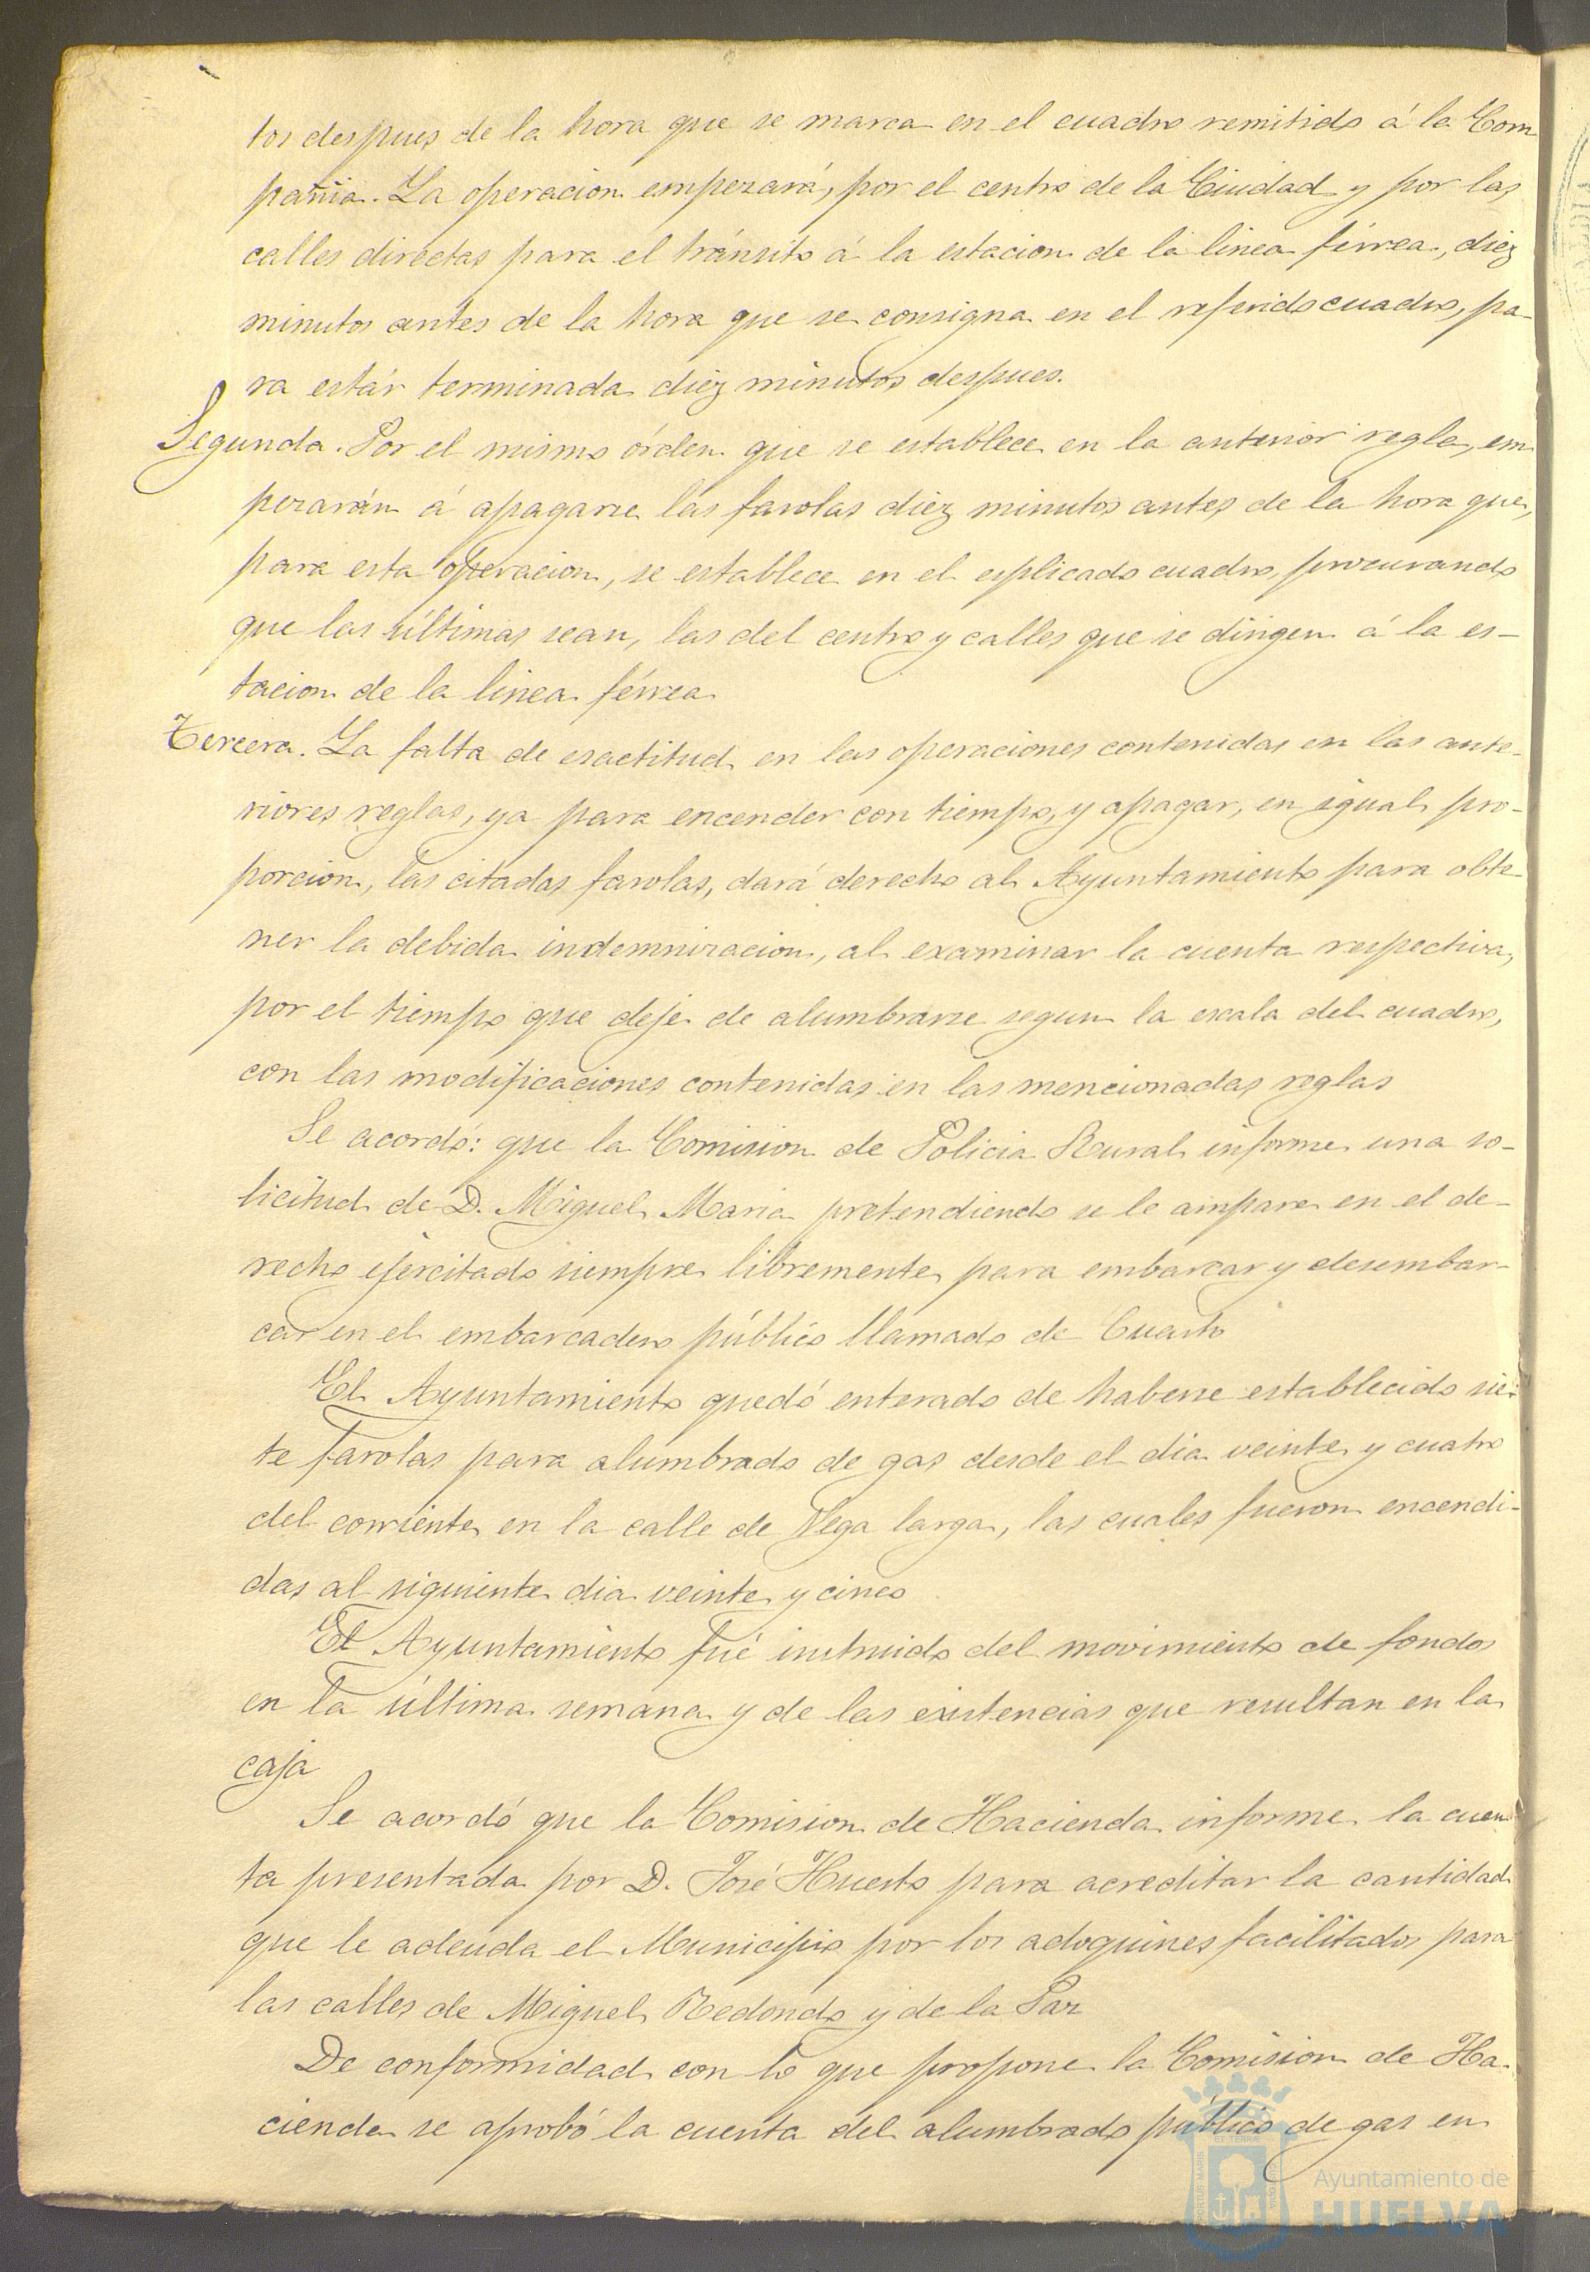 tos despues de la hora que se marca en el cuadro remitido á la Com
pañia. La operacion empezará, por el centro de la Ciudad y por las
calles directas para el tránsito á la estacion de la linea férrea, diez
minutos antes de la hora que se consigna en el referido cuadro, pa-
ra estár terminada diez minutos despues.
Segunda. Por el mismo órden que se establece en la anterior regla, em
pezarán á apagarse las farolas diez minutos antes de la hora que,
para esta operacion, se establece en el esplicado cuadro, procurando
que las últimas sean, las del centro y calles que se dirigen á la es-
tacion de la linea férrea.
Tercera. La falta de esactitud en las operaciones contenidas en las ante-
riores reglas, ya para encender con tiempo, y apagar, en igual pro-
porcion, las citadas farolas, dará derecho al Ayuntamiento para obte-
ner la debida indemnizacion, al examinar la cuenta respectiva,
por el tiempo que deje de alumbrarse segun la escala del cuadro,
con las modificaciones contenidas en las mencionadas reglas
Se acordó: que la Comision de Policia Rural informe una so-
licitud de D. Miguel Maria pretendiendo se le ampare en el de-
recho ejercitado siempre libremente para embarcar y desembar-
car en el embarcadero público llamado de Cuarto
El Ayuntamiento quedó enterado de haberse establecido sie-
te farolas para alumbrado de gas desde el dia veinte y cuatro
del corriente en la calle de Vega larga, las cuales fueron encendi-
das al siguiente dia veinte y cinco
El Ayuntamiento fué instruido del movimiento de fondos
en la última semana y de las existencias que resultan en la
caja
Se acordó que la Comision de Hacienda informe la cuen
ta presentada por D. José Huerto para acreditar la cantidad
que le adeuda el Municipio por los adoquines facilitados para
las calles de Miguel Redondo y de la Paz
De conformidad con lo que propone la Comision de Ha-
cienda se aprobó la cuenta del alumbrado público de gas en
Ayuntamiento de
HUELVA